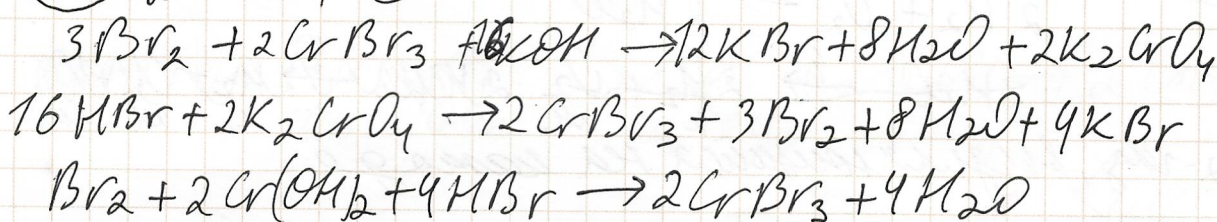 3Br₂ + 2CrBr₃ + 16KOH → 12KBr + 8H₂O + 2K₂CrO₄
16HBr + 2K₂CrO₄ → 2CrBr₃ + 3Br₂ + 8H₂O + 4KBr
Br₂ + 2Cr(OH)₂ + 4HBr → 2CrBr₃ + 4H₂O